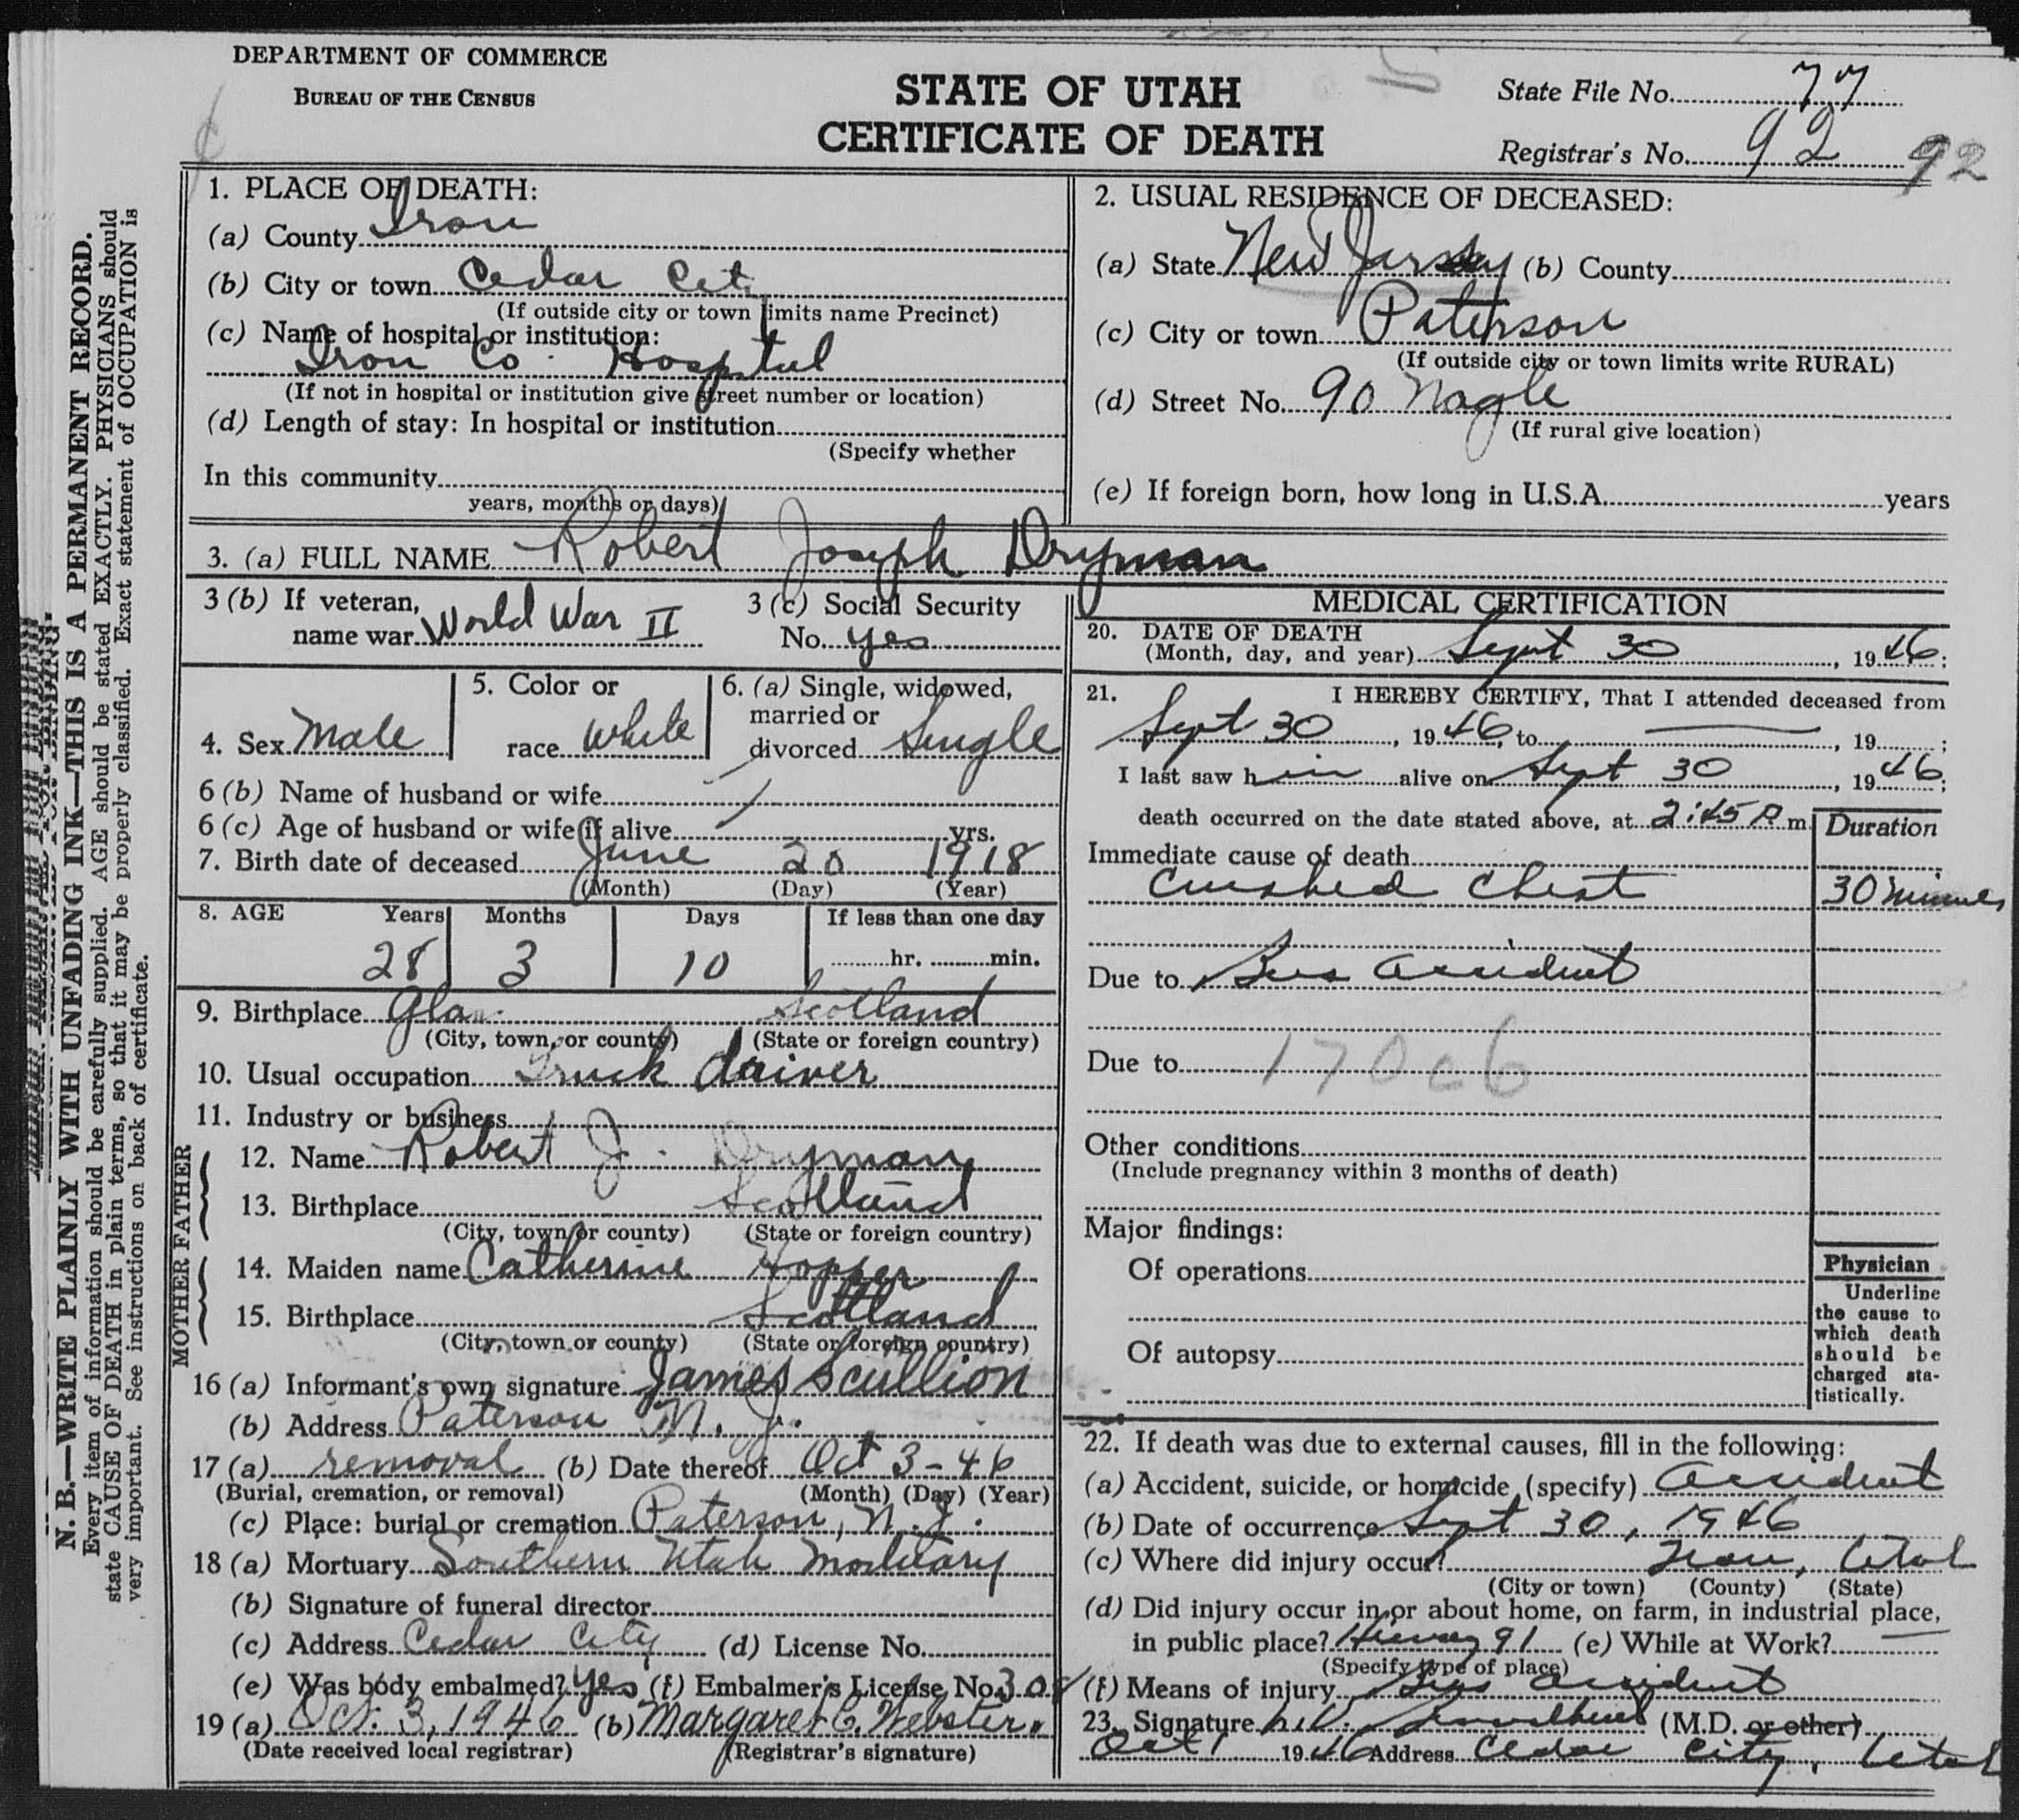 DEPARTMENT OF COMMERCE
BUREAU OF THE CENSUS
STATE OF UTAH
CERTIFICATE OF DEATH
State File No. 77
Registrar's No. 92 92
N. B.—WRITE PLAINLY WITH UNFADING INK—THIS IS A PERMANENT RECORD.
Every item of information should be carefully supplied. AGE should be stated EXACTLY. PHYSICIANS should
state CAUSE OF DEATH in plain terms, so that it may be properly classified. Exact statement of OCCUPATION is
very important. See instructions on back of certificate.
1. PLACE OF DEATH:
(a) County Iron
(b) City or town Cedar City
(If outside city or town limits name Precinct)
(c) Name of hospital or institution:
Iron Co. Hospital
(If not in hospital or institution give street number or location)
(d) Length of stay: In hospital or institution
(Specify whether
In this community
years, months or days)
2. USUAL RESIDENCE OF DECEASED:
(a) State New Jersey (b) County
(c) City or town Paterson
(If outside city or town limits write RURAL)
(d) Street No. 90 Nagle
(If rural give location)
(e) If foreign born, how long in U.S.A. years
3. (a) FULL NAME Robert Joseph Dryman
3 (b) If veteran,
name war World War II
3 (c) Social Security
No. yes
4. Sex Male
5. Color or
race White
6. (a) Single, widowed,
married or
divorced Single
6 (b) Name of husband or wife
6 (c) Age of husband or wife if alive yrs.
7. Birth date of deceased June 20 1918
(Month) (Day) (Year)
8. AGE Years Months Days If less than one day
28 3 10 hr. min.
9. Birthplace Scotland
(City, town, or county) (State or foreign country)
10. Usual occupation Truck driver
11. Industry or business
FATHER
12. Name Robert J. Dryman
13. Birthplace Scotland
(City, town or county) (State or foreign country)
MOTHER
14. Maiden name Catherine Hopper
15. Birthplace Scotland
(City, town or county) (State or foreign country)
16 (a) Informant's own signature James Scullion
(b) Address Paterson N. J.
17 (a) removal (b) Date thereof Oct 3-46
(Burial, cremation, or removal) (Month) (Day) (Year)
(c) Place: burial or cremation Paterson, N. J.
18 (a) Mortuary Southern Utah Mortuary
(b) Signature of funeral director
(c) Address Cedar City (d) License No.
(e) Was body embalmed? yes (f) Embalmer's License No. 308
19 (a) Oct. 3, 1946 (b) Margaret C. Webster.
(Date received local registrar) (Registrar's signature)
MEDICAL CERTIFICATION
20. DATE OF DEATH
(Month, day, and year) Sept 30, 1946:
21. I HEREBY CERTIFY, That I attended deceased from
Sept 30, 1946, to , 19 ;
I last saw him alive on Sept 30, 1946;
death occurred on the date stated above, at 2:45 P m.
Duration
Immediate cause of death
Crushed Chest 30 minutes
Due to Bus accident
Due to 170c6
Other conditions
(Include pregnancy within 3 months of death)
Major findings:
Of operations
Of autopsy
Physician
Underline
the cause to
which death
should be
charged sta-
tistically.
22. If death was due to external causes, fill in the following:
(a) Accident, suicide, or homicide (specify) accident
(b) Date of occurrence Sept 30, 1946
(c) Where did injury occur? Iron, Utah
(City or town) (County) (State)
(d) Did injury occur in or about home, on farm, in industrial place,
in public place? 91 (e) While at Work?
(Specify type of place)
(f) Means of injury Bus accident
23. Signature (M.D. or other)
Oct 1 1946 Address Cedar City, Utah